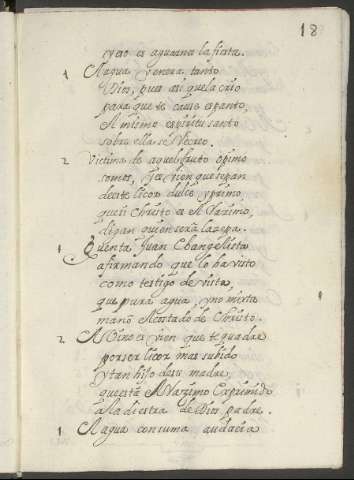 18
pero es aguarnos la fiesta.
1 Al agua venera tanto
Dios, pues asi que la crio
para que te cause espanto,
el mismo espiritu santo
sobre ella se
2 Victima de aquel fruto opimo
somos, y es bien que sepan
de este licor dulce y primo
que si Christo es el Razimo,
digan quien será la zepa.
1 Quenta Juan Evangelista
afirmando que lo ha visto
como testigo de vista,
que pura agua y no mixta
manó el costado de Christo.
2 Al Vino es bien que te quadre
por ser licor mas subido
y tan hijo de su madre
que está el Razimo exprimido
a la diestra de Dios padre.
1 El agua con suma audacia